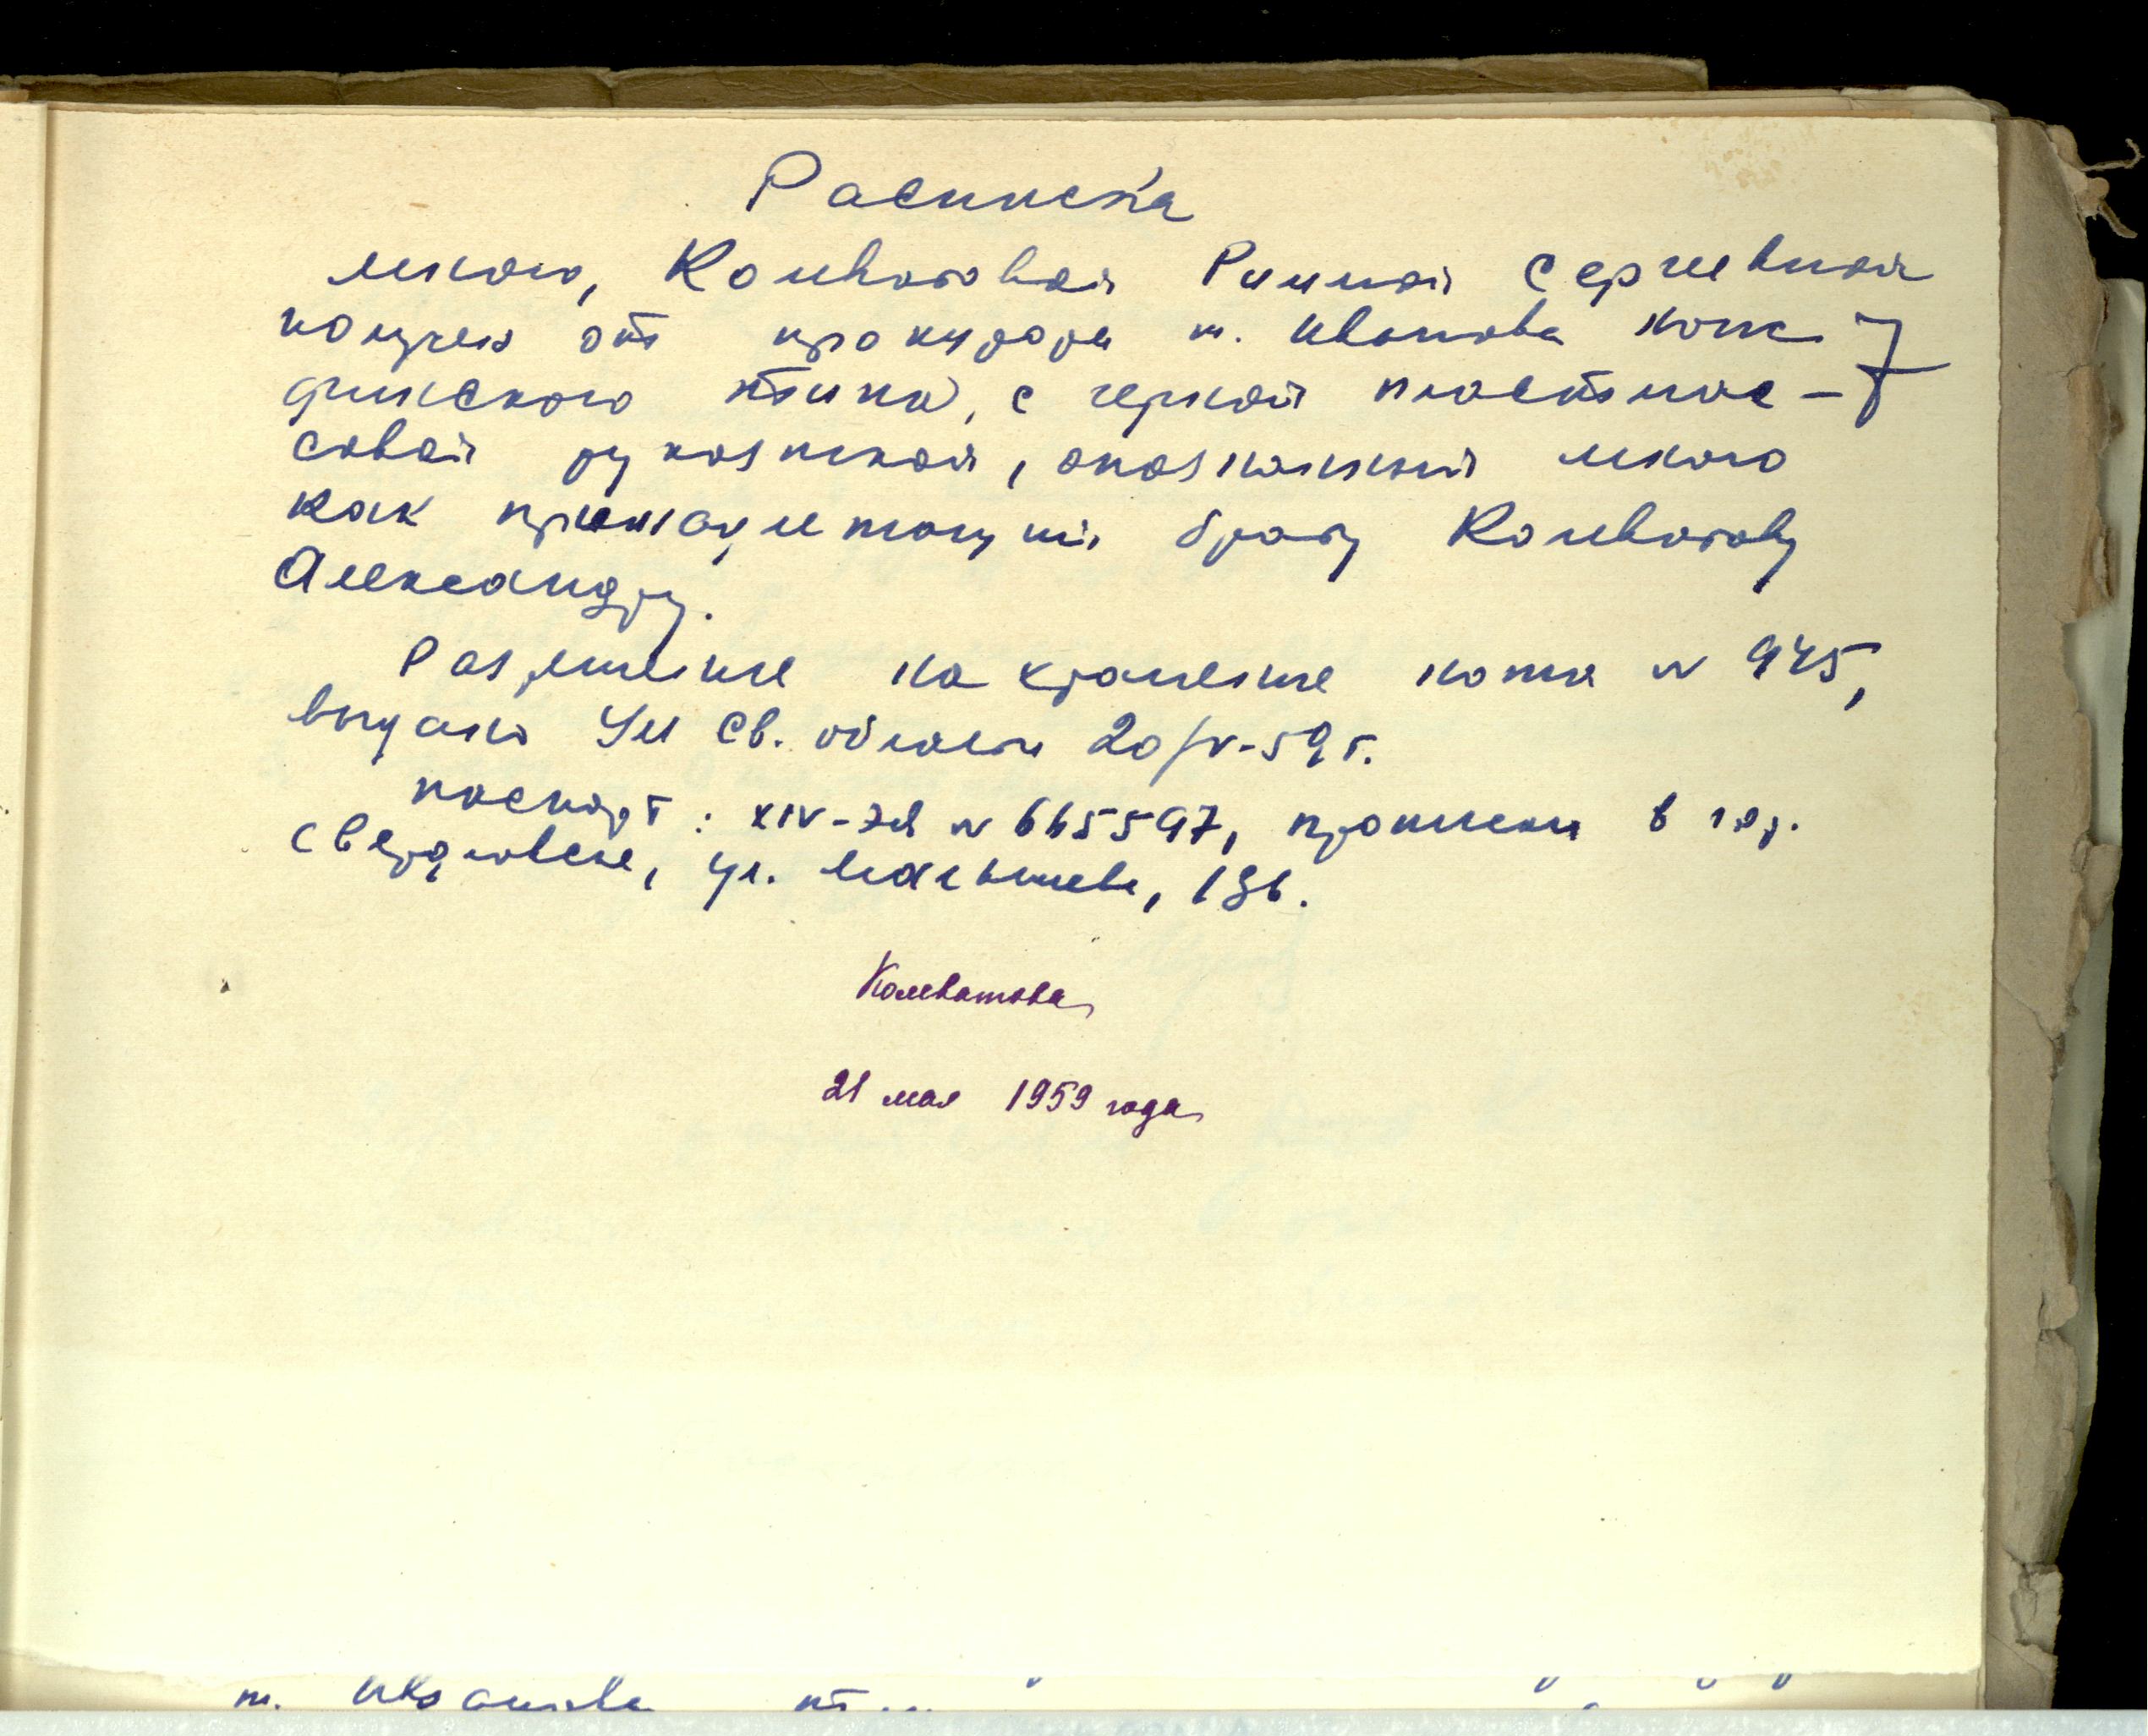 Расписка
мною, Колеватовой Риммой Сергеевной
получен от прокурора т. Иванова нож
финского типа, с черной пластмас-
совой рукояткой, опознанный мною
как принадлежащий брату Колеватову
Александру.
Разрешение на хранение ножа № 945,
выдано УМ Св. области 20/V-59 г.
паспорт: XIV-ЭВ № 665597, прописан в гор.
Свердловске, ул. Малышева, 136.
Колеватова
21 мая 1959 года
т.